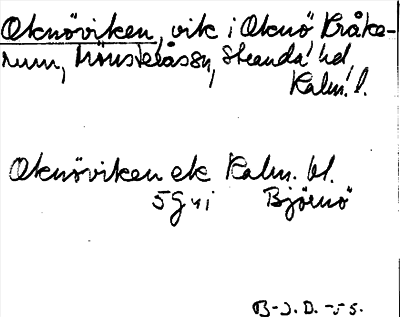 Oknöviken, vik i Oknö Kråke-
rum, Mönsterås sn, Stranda hd,
Kalm. l.
Oknöviken ek Kalm. bl.
5G4i Björnö
B-J. D. -55.